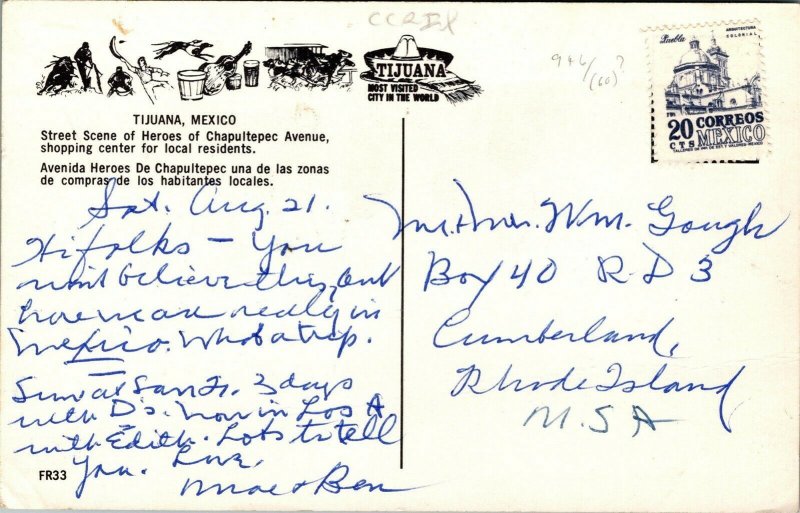 CCRIX
946/(60)?
Puebla
ARQUITECTURA
COLONIAL
20 CORREOS
CTS MEXICO
TIJUANA
MOST VISITED
CITY IN THE WORLD
TIJUANA, MEXICO
Street Scene of Heroes of Chapultepec Avenue,
shopping center for local residents.
Avenida Heroes De Chapultepec una de las zonas
de compras de los habitantes locales.
Sat. Aug. 21.
Hi folks - You
won't believe this, but
here we are really in
Mexico. What a trip.
San Fr. 3 days
with D's. Now in Los A
with Edith. Lots to tell
you. Love,
Mae + Ben
FR33
Mr. + Mrs. Wm. Gough
Box 40 R D 3
Cumberland,
Rhode Island
U.S.A